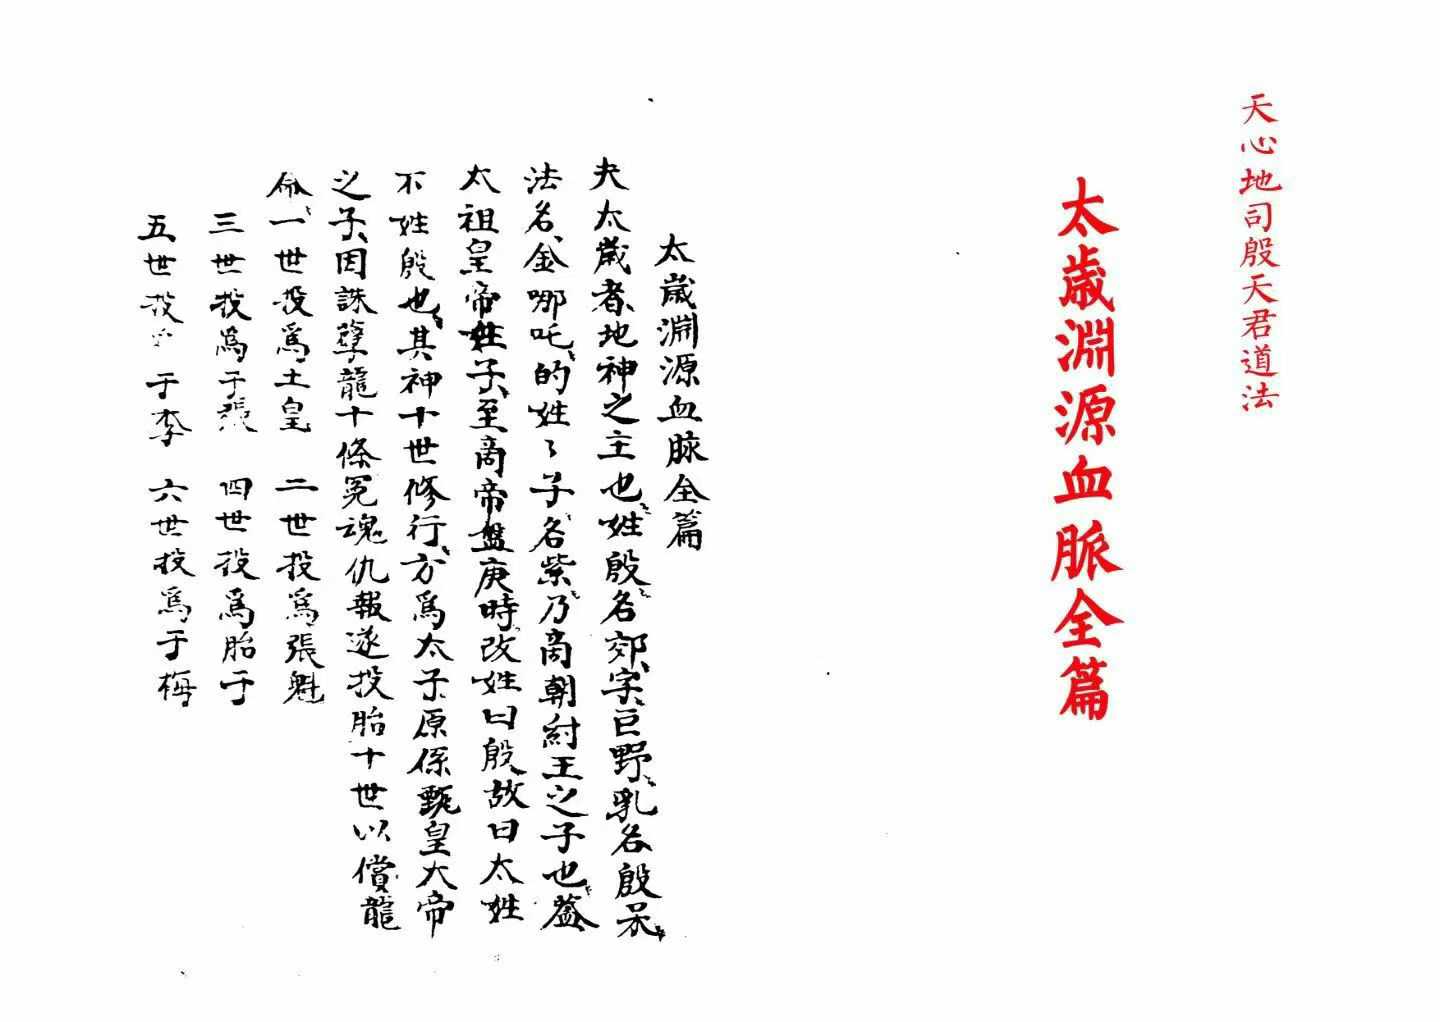 天心地司殷天君道法
太歲淵源血脈全篇
太歲淵源血脉全篇
夫太歲者地神之主也姓殷名郊字巨野乳名殷呆
法名金哪吒的姓々子名紫乃商朝紂王之子也蓋
太祖皇帝姓子至商帝盤庚時改姓曰殷故曰太姓
不姓殷也其神十世修行方爲太子原係甄皇大帝
之子因誅孽龍十條冤魂仇報遂投胎十世以償龍
命一世投爲土皇 二世投爲張魁
三世投爲于張 四世投爲胎于
五世投 于李 六世投爲于梅